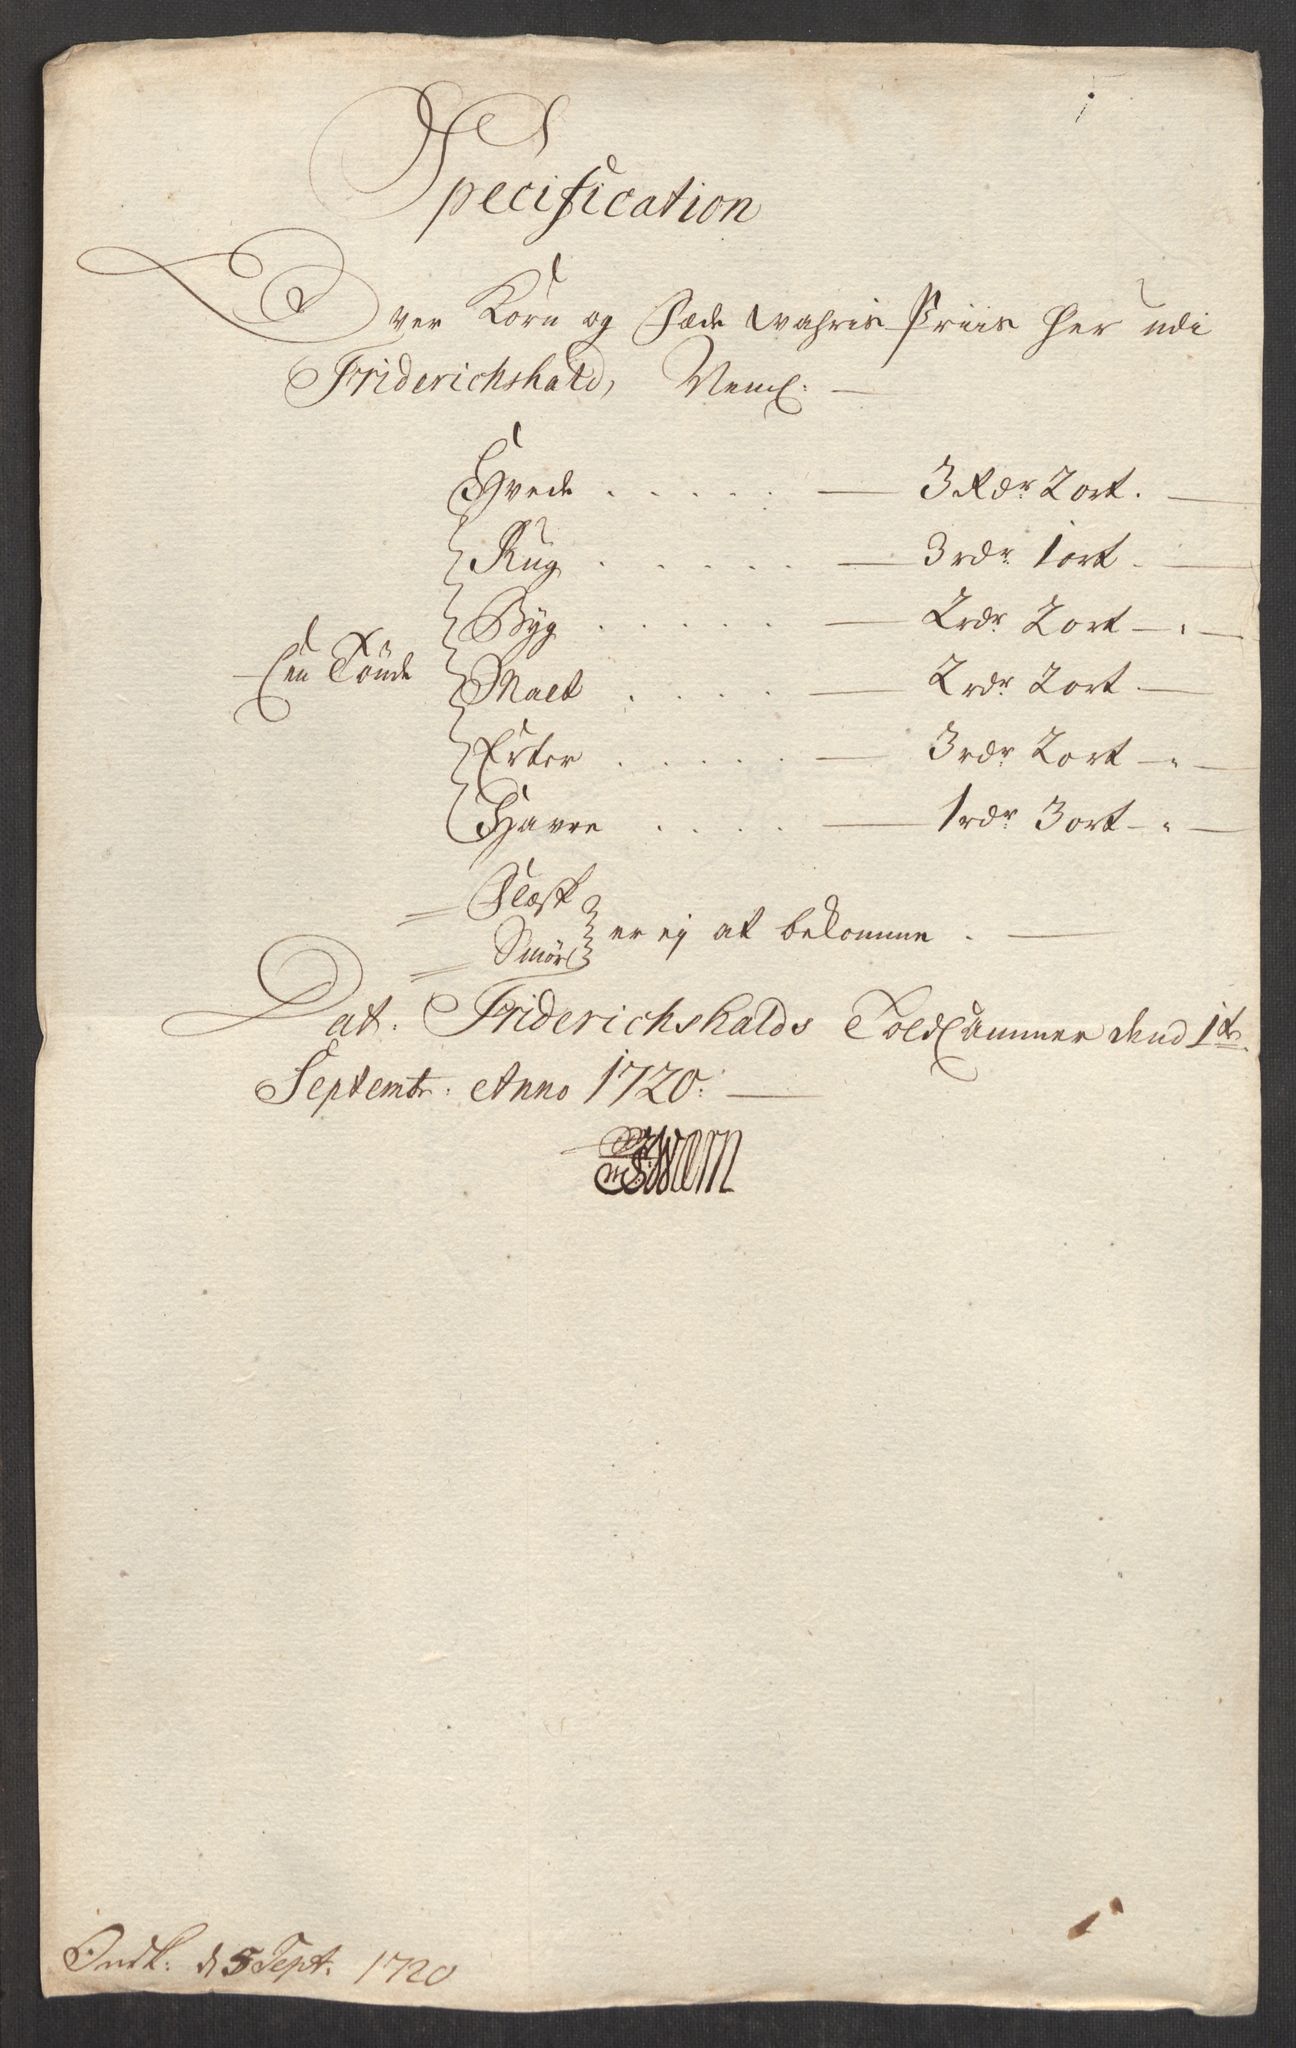 Specification
Over Korn og Fæde wahris Priis her udi
Friderichshald, Neml:
Hvede . . . . . — 3 Rdr 2 ort. —
Rug . . . . . — 3 rdr 1 ort. —
Byg . . . . . — 2 rdr 2 ort — " —
En Tönde
Malt . . . . — 2 rdr 2 ort —
Erter . . . . . — 3 rdr 2 ort — " —
Havre . . . . — 1 rdr 3 ort — " —
Flæsk
Smör
er ej at bekomme . —
Dat. Friderichshalds ToldCammer dend 1te
Septembr: Anno 1720: —
d 5 Sept. 1720